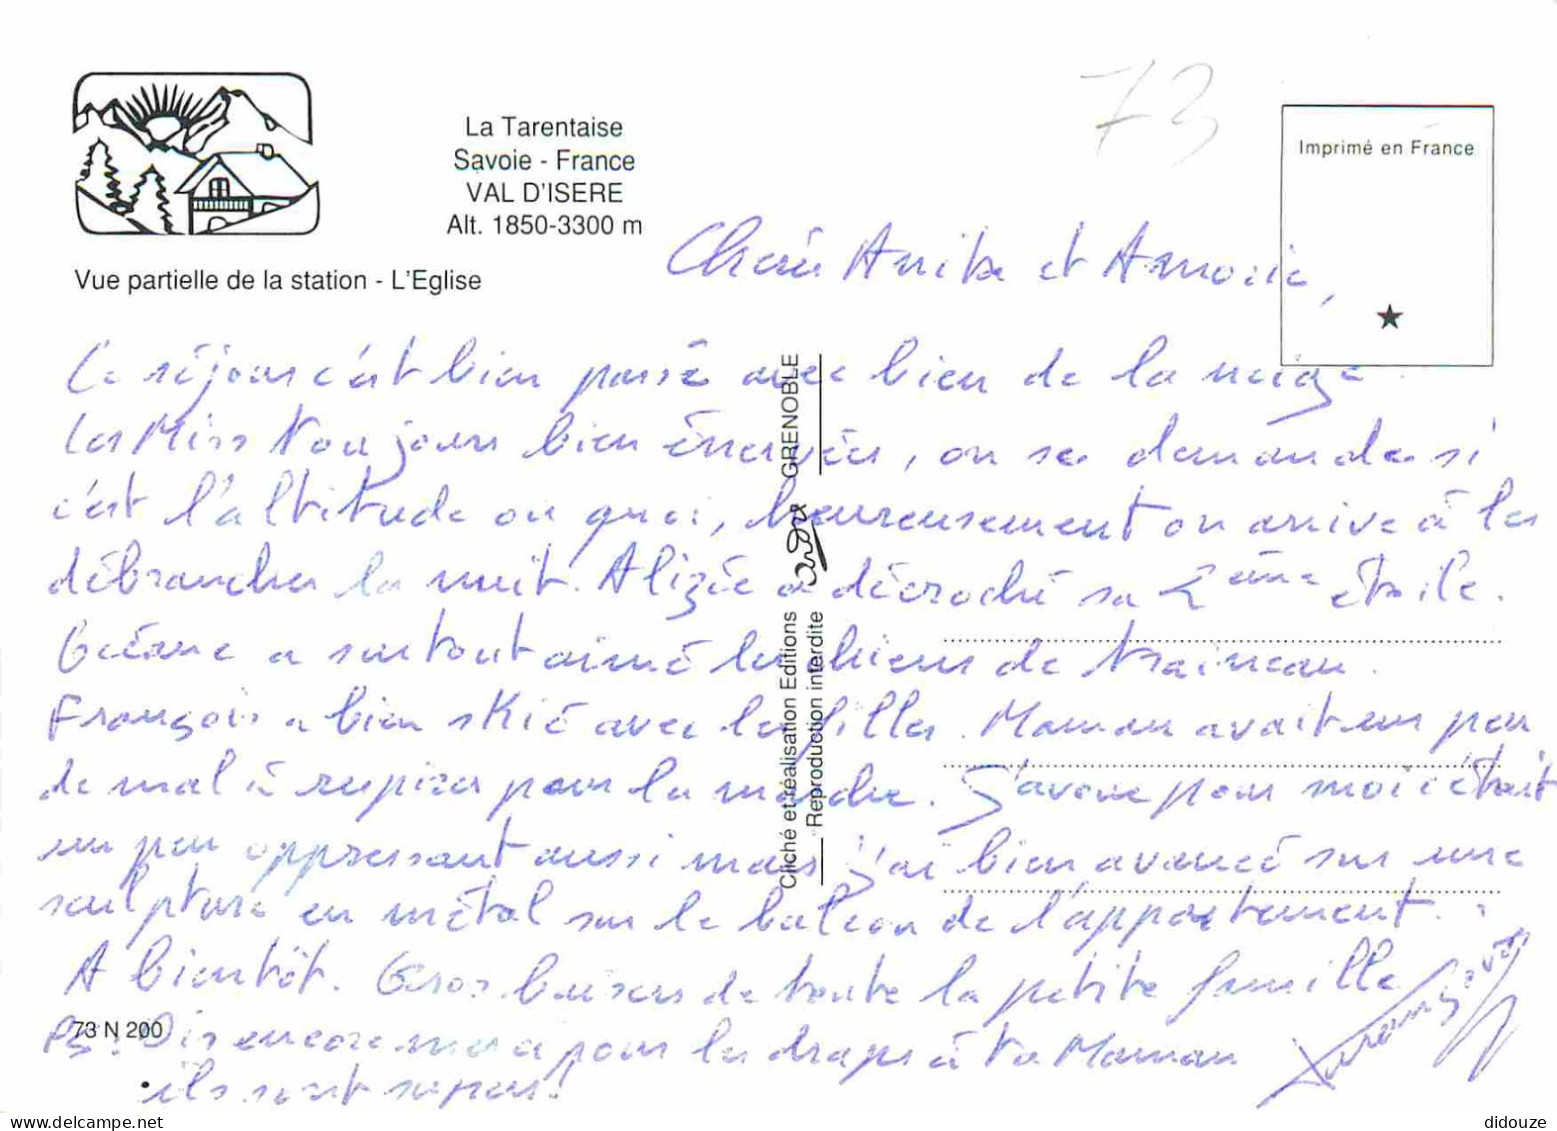 73
Imprimé en France
La Tarentaise
Savoie - France
VAL D'ISERE
Alt. 1850-3300 m
Vue partielle de la station - L'Eglise
Chère Anita et
Ce séjour c'est bien passé avec bien de la neige.
Les Miss toujours bien énervées, on se demande si
c'est l'altitude ou quoi, heureusement on arrive à les
débrancher la nuit. Alizée a décroché sa 2ème étoile.
Océane a surtout aimé les chiens de traineau.
François a bien skié avec les filles. Maman avait un peu
de mal à respirer pour la marche. J'avoue pour moi c'était
un peu oppressant aussi mais j'ai bien avancé sur une
sculpture en métal sur le balcon de l'appartement.
A bientôt. Gros baisers de toute la petite famille
PS: Dis encore merci pour les draps à ta Maman
ils sont supers!
73 N 200
GRENOBLE
Cliché et réalisation Editions
Reproduction interdite
didouze